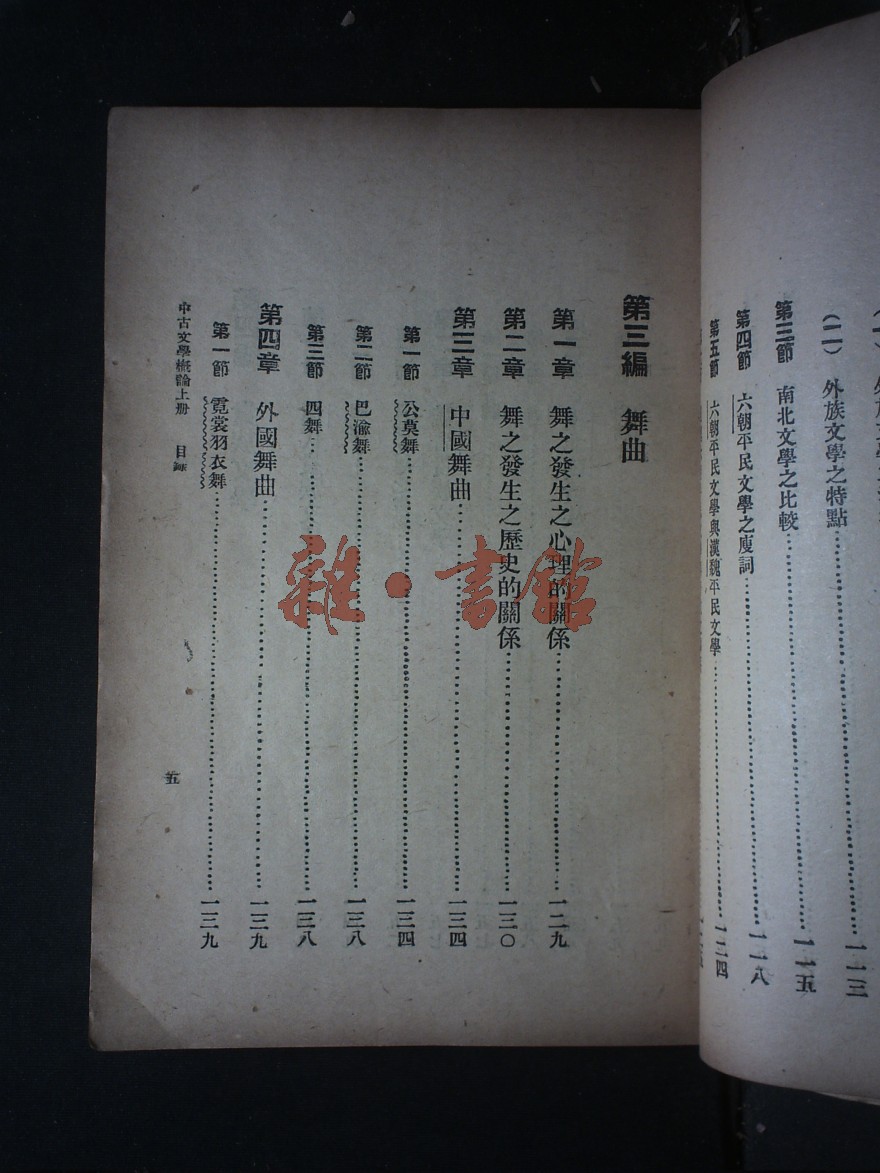 外族文學之
(二) 外族文學之特點 一一三
第三節 南北文學之比較 一一五
第四節 六朝平民文學之廋詞 一一八
第五節 六朝平民文學與漢魏平民文學 一二四
第三編 舞曲
第一章 舞之發生之心理的關係 一二九
第二章 舞之發生之歷史的關係 一三〇
第三章 中國舞曲 一三四
第一節 公莫舞 一三四
第二節 巴渝舞 一三八
第三節 四舞 一三八
第四章 外國舞曲 一三九
第一節 霓裳羽衣舞 一三九
中古文學概論上册 目錄 五
雜·書館